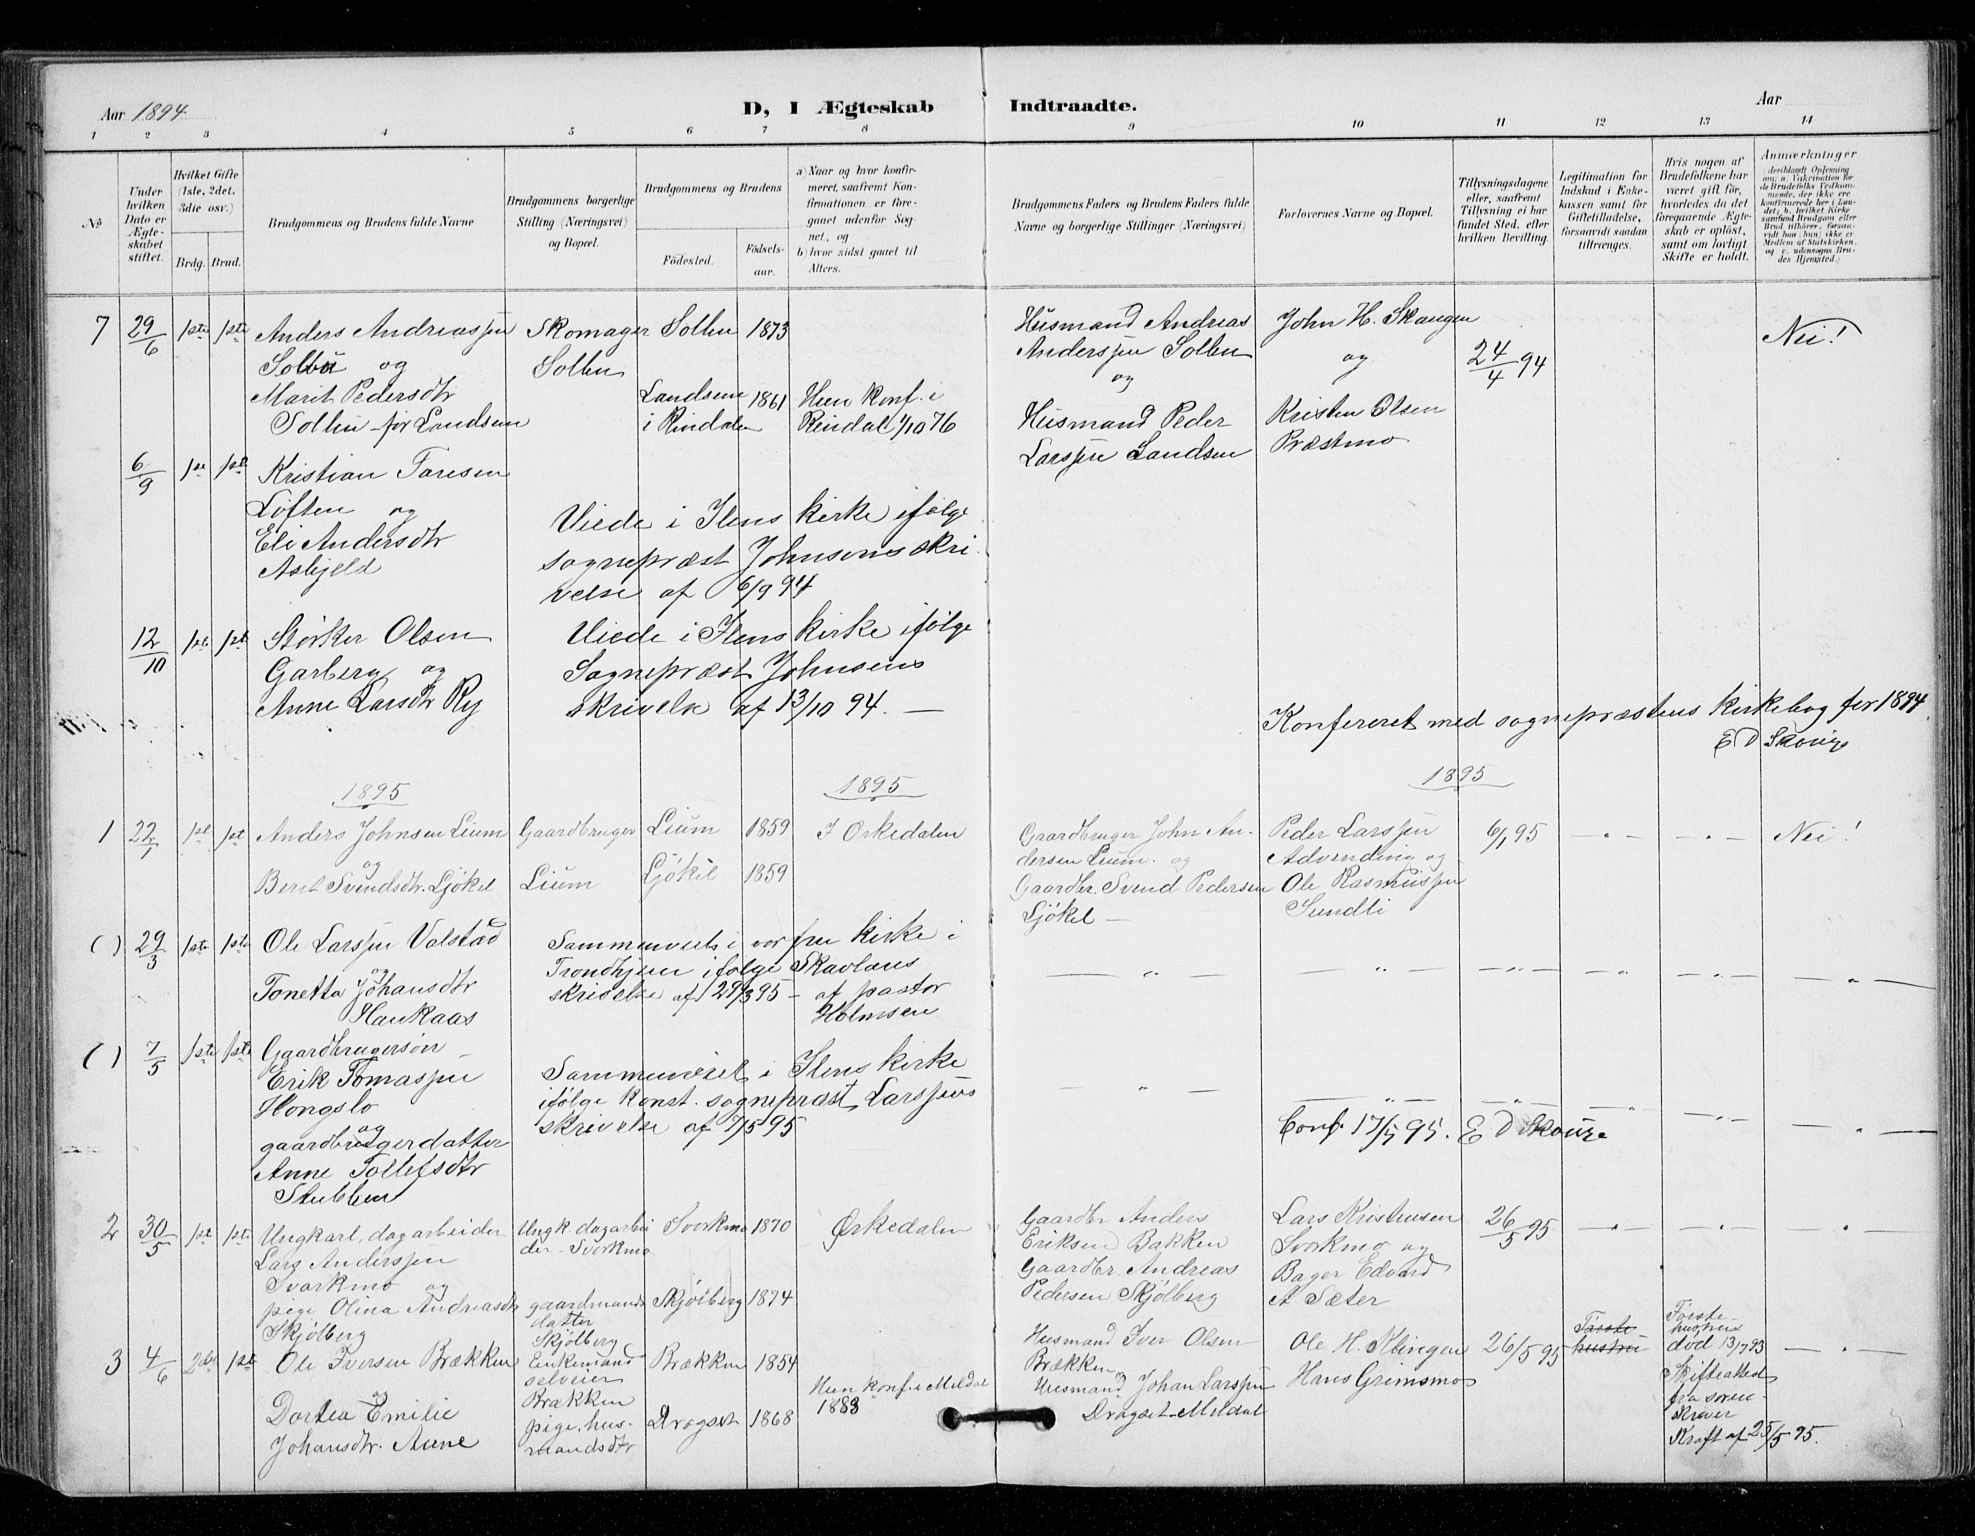 Aar 1894
D, I Ægteskab Indtraadte.
Aar
1 2 3 4 5 6 7 8 9 10 11 12 13 14
No
Under hvilken Dato er Ægteskabet stiftet.
Hvilket Gifte (1ste, 2det, 3die osv.)
Brdg. Brud.
Brudgommens og Brudens fulde Navne
Brudgommens borgerlige Stilling (Næringsvei) og Bopæl.
Brudgommens og Brudens
Födested.
Födselsaar.
a) Naar og hvor konfirmeret, saafremt Konfirmationen er foregaaet udenfor Sognet, og
b) hvor sidst gaaet til Alters.
Brudgommens Faders og Brudens Faders fulde Navne og borgerlige Stillinger (Næringsvei)
Forlovernes Navne og Bopæl.
Tillysningsdagene eller, saafremt Tillysning ei har fundet Sted, efter hvilken Bevilling.
Legitimation for Indskud i Enkekassen samt for Giftetilladelse, forsaavidt saadan tiltrænges.
Hvis nogen af Brudefolkene har været gift för, hvorledes da det foregaaende Ægteskab er oplöst, samt om lovligt Skifte er holdt.
Anmærkninger
7 29/6 1ste 1ste
Anders Andreassen
Solbu og
Marit Pedersdtr
Solbu før Landsem
Skomager
Solbu
Solbu 1873
Landsem 1861
i Rindalen
Hun konf. i
Rindal 1/10 76
Husmand Andreas
Anderssen Solbu
og
Husmand Peder
Larssen Landsem
John H. Skaugen
og
Kristen Olsen
Præstmo
24/4 94
Nei!
6/9 1ste 1ste
Kristian Toresen
Løften og
Eli Andersdtr
Asbjeld
Viede i Ilens kirke ifølge
sognepræst Johnsens skri
velse af 6/9 94
12/10 1ste 1ste
Størker Olsen
Garberg og
Anne Larsdtr Ry
Viede i Ilens kirke ifølge
Sognepræst Johnsens
skrivelse af 13/10 94. —
Konfereret med sognepræstens kirkebog for 1894
E D Skouge
1895 1895 1895
1 22/1 1ste 1ste
Anders Johnsen Lium
og
Berit Svendsdtr. Ljøkel
Gaardbruger
Lium
Lium 1859
Ljøkel 1859
I Orkedalen
Gaardbruger John An-
dersen Lium. og
Gaardbr. Svend Pedersen
Ljøkel —
Peder Larssen
Advending og
Ole Rasmussen
Sundli
6/1 95
— " — — " — Nei!
( ) 29/3 1ste 1ste
Ole Larssen Valstad
og
Tonetta Johansdtr
Haukaas
Sammenviet i vor frue kirke i
Trondhjem ifølge Skavlans
skrivelse af 29/3 95 — af pastor
Holmsen
( ) 7/5 1ste 1ste
Gaardbrugersøn
Erik Tomassen
Hongslo
og
gaardbrugerdatter
Anne Tollefsdtr
Stubben
Sammenviet i Ilens kirke
ifølge konst. sognepræst Larssens
skrivelse af 7/5 95
Conf. 17/5 95. E D Skouge
2 30/5 1ste 1ste
Ungkarl, dagarbeider
Lars Anderssen
Svorkmo og
pige Olina Andreasdtr
Skjølberg
Ungk. dagarbei
der — Svorkmo
gaardmands
datter
Skjølberg
Svorkmo 1870
Skjølberg 1874
Orkedalen
Gaardbr Anders
Eriksen Bakken
Gaardbr. Andreas
Pedersen Skjølberg
Lars Kristensen
Svorkmo og
Bager Edvard
A Sæter
26/5 95
3 4/6 2den 1ste
Ole Iversen Brækken
og
Dortea Emilie
Johansdtr. Aune
Enkemand
selveier
Brækken
pige, hus-
mandsdtr
Brækken 1854
Dragset 1868
Hun konf i Meldal
1883
Husmand Iver Olsen
Brækken
Husmand Johan Larssen
Dragset Meldal
Ole H. Klingen
Hans Grimsmo
26/5 95
Første
hustru
Første
hustru
død 13/7 93
Skifteattest
fra soren-
skriver
Kraft af 25/5 95.